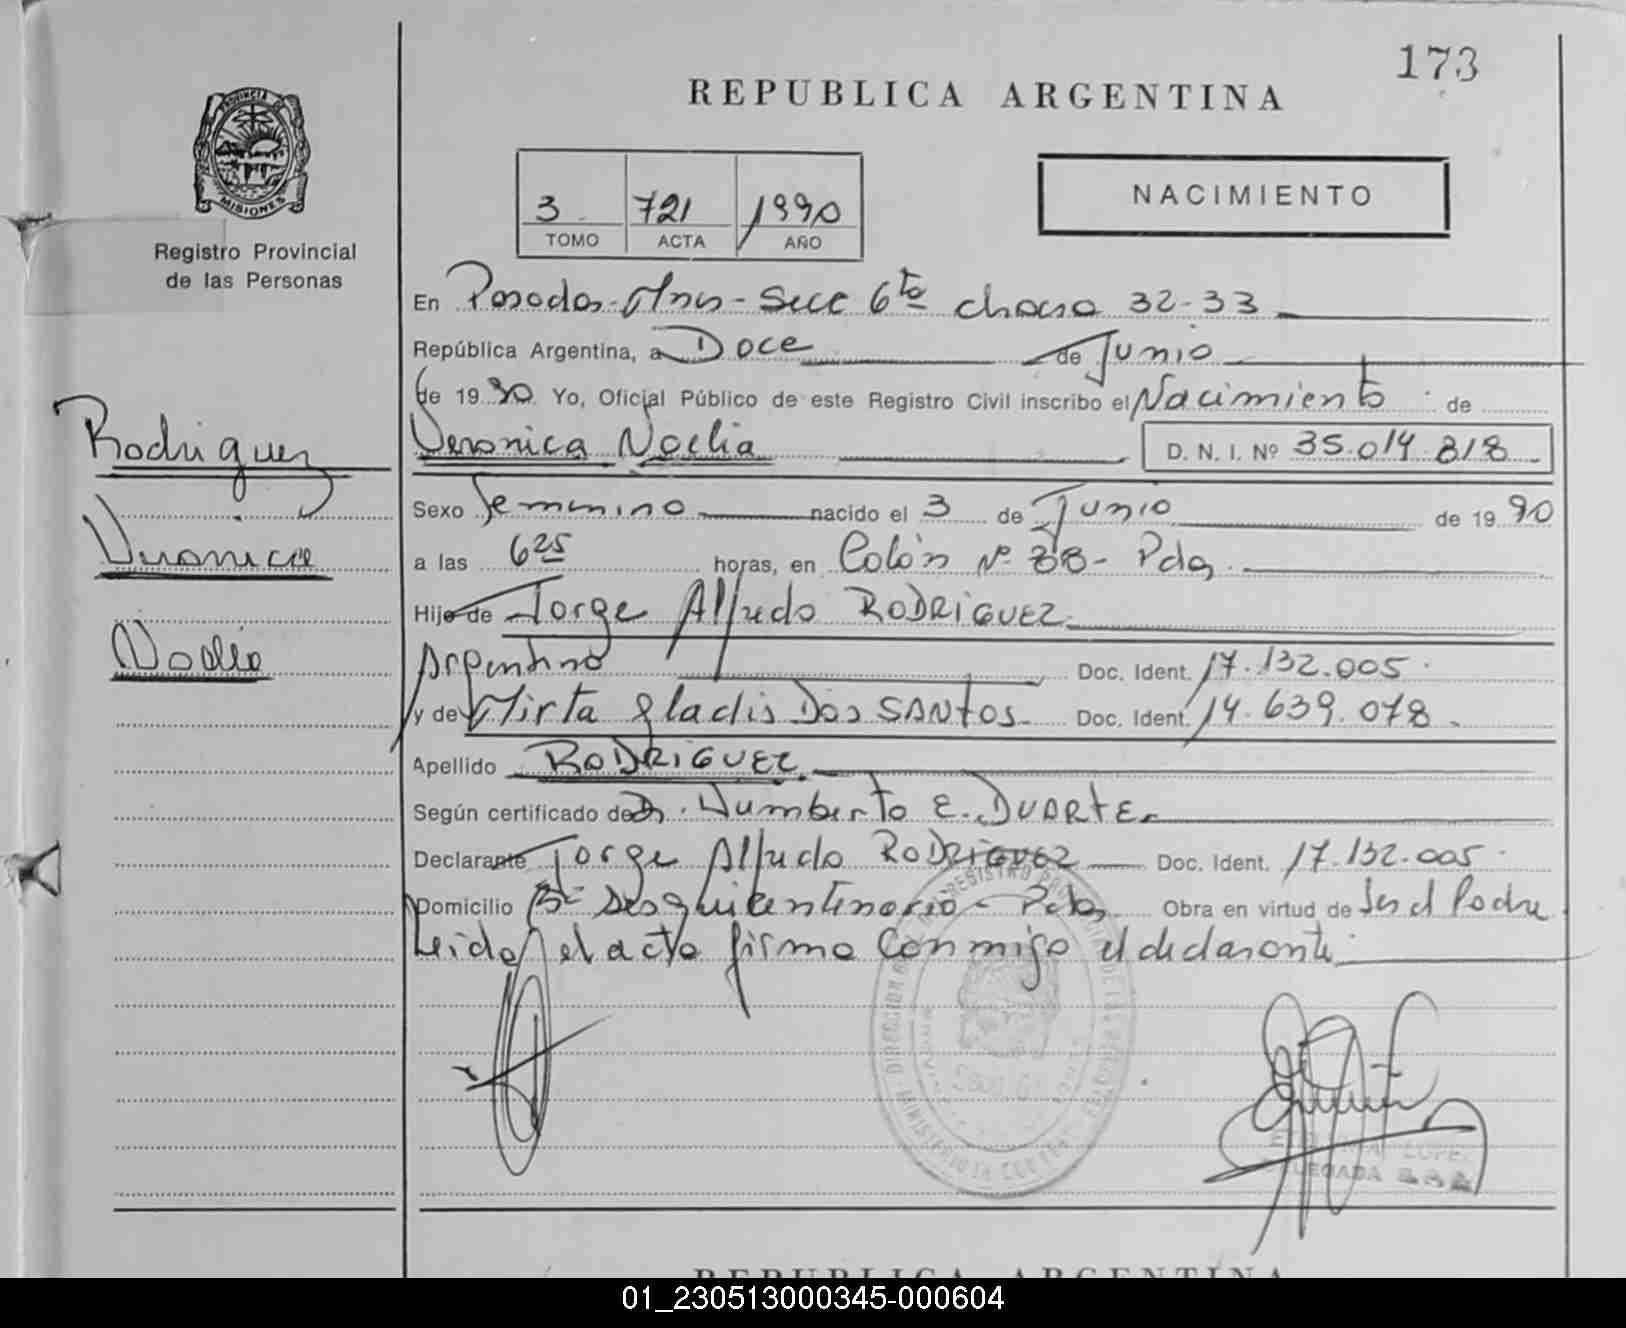 173
REPUBLICA ARGENTINA
PROVINCIA DE
MISIONES
Registro Provincial
de las Personas
3 721 1990
TOMO ACTA AÑO
NACIMIENTO
En Posadas-Mnes-Secc 6ta chacra 32-33
República Argentina, a Doce de Junio
de 1990 Yo, Oficial Público de este Registro Civil inscribo el Nacimiento de
Veronica Noelia D. N. I. Nº 35.014.818
Sexo Femenino nacido el 3 de Junio de 1990
a las 6 25 horas, en Colón Nº 88- Pdas
Hijo de Jorge Alfredo RODRIGUEZ
Argentino Doc. Ident. 17.132.005
y de Mirta Gladis Dos SANTOS Doc. Ident. 14.639.078
Apellido RODRIGUEZ
Según certificado de Dr. Humberto E. DUARTE
Declarante Jorge Alfredo RODRIGUEZ Doc. Ident. 17.132.005
Domicilio Bº Sesquicentenario - Pdas Obra en virtud de Ser el Padre
Leida el acta firma conmigo el declarante
Rodriguez
Veronica
Noelia
REPUBLICA ARGENTINA
01_230513000345-000604